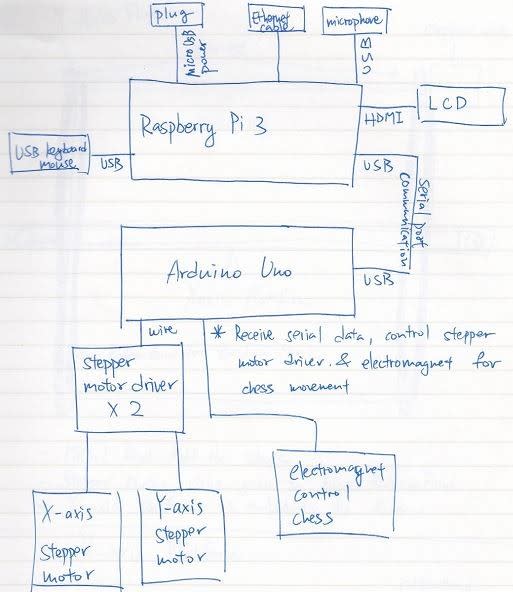 plug
Ethernet
cable
microphone
micro USB
power
USB
Raspberry Pi 3
HDMI
LCD
USB keyboard
mouse
USB
USB
serial port
communication
Arduino Uno
USB
wire
* Receive serial data, control stepper
motor driver & electromagnet for
chess movement
stepper
motor driver
X 2
electromagnet
control
chess
X-axis
stepper
motor
Y-axis
stepper
motor